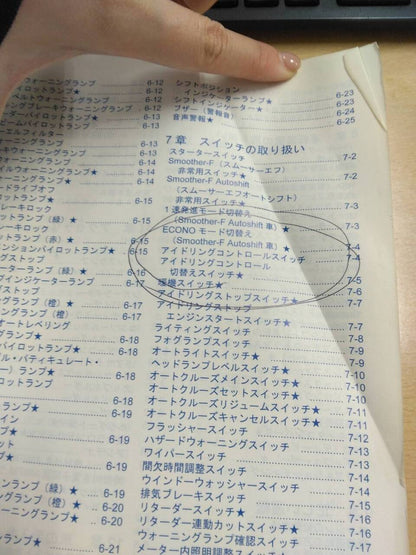 ウォーニングランプ 6-12
イロットランプ★ 6-12
ベルトウォーニングランプ 6-12
ングブレーキウォーニングランプ 6-12
ーダーパイロットランプ★ 6-13
ビームパイロットランプ 6-13
ーエルフィルター
ォーニングランプ 6-13
ウォーニングランプ 6-14
イルウォーニングランプ★ 6-14
ォーニングランプ★ 6-14
ードライブオフ
イロットランプ★
ューキーロック
ットランプ（緑）★ 6-15
ーキーロック
ットランプ（赤）★ 6-15
ンションパイロットランプ★ 6-15
グストップ
ーターランプ（緑）★ 6-16
グインジケーターランプ 6-17
ーニングランプ
ングランプ（橙）★ 6-17
ートレベリング
ングランプ★ 6-17
パイロットランプ★
ル・パティキュレート・
ー）ランプ★ 6-18
イロットランプ
ランプ★ 6-19
ニングランプ 6-19
ランプ（緑）★ 6-19
ングランプ（橙）★ 6-20
ーニングランプ★ 6-20
ランプ★ 6-21
シフトポジション
インジケーターランプ★ 6-23
シフトインジケーター★ 6-23
ブザー（警報音） 6-24
音声警報★ 6-25
7章 スイッチの取り扱い
スタータースイッチ 7-2
Smoother-F（スムーサーエフ）
非常用スイッチ★ 7-2
Smoother-F Autoshift
（スムーサーエフオートシフト）
非常用スイッチ★ 7-3
1速発進モード切替え
（Smoother-F Autoshift 車）★ 7-3
ECONO モード切替え
（Smoother-F Autoshift 車）★ 7-4
アイドリングコントロールスイッチ 7-4
アイドリングコントロール
切替えスイッチ★ 7-5
暖機スイッチ★ 7-6
アイドリングストップスイッチ★ 7-7
アイドリングストップ
エンジンスタートスイッチ★ 7-7
ライティングスイッチ 7-8
フォグランプスイッチ 7-9
オートライトスイッチ★ 7-9
ヘッドランプレベルスイッチ★ 7-10
オートクルーズメインスイッチ★ 7-10
オートクルーズセットスイッチ★ 7-10
オートクルーズリジュームスイッチ★ 7-11
オートクルーズキャンセルスイッチ★ 7-11
フラッシャースイッチ 7-12
ハザードウォーニングスイッチ 7-13
ワイパースイッチ 7-13
間欠時間調整スイッチ 7-14
ウインドーウォッシャースイッチ 7-14
排気ブレーキスイッチ 7-15
リターダースイッチ★ 7-16
リターダー連動カットスイッチ★ 7-16
ウォーニングランプ確認スイッチ 7-16
メーター内照明調整スイッチ 7-17